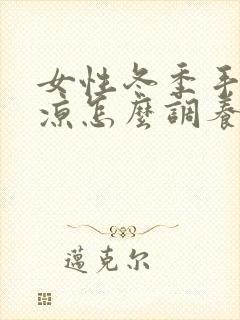 女性冬季手
涼怎麼調養
邁克尔